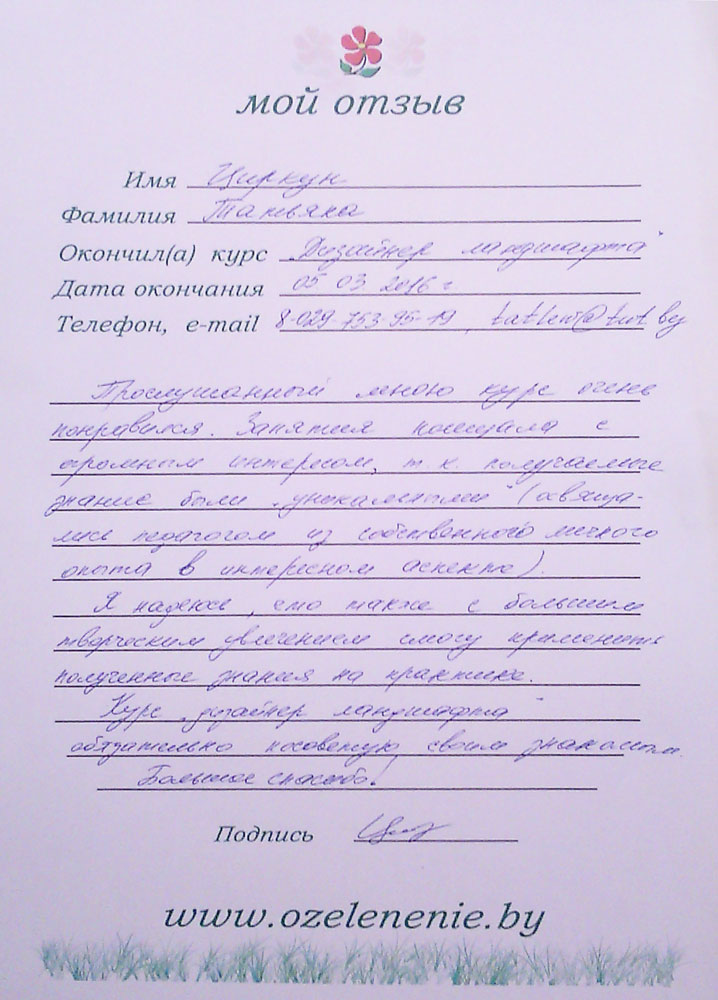 мой отзыв
Имя Циркун
Фамилия Татьяна
Окончил(а) курс „Дизайнер ландшафта"
Дата окончания 05 03 2016 г
Телефон, e-mail 8-029 753-95-19, @tut.by
Прослушанный мною курс очень
понравился. Занятия посещала с
огромным интересом, т.к. получаемые
знание были „уникальными" (освяща-
лись педагогом из собственного личного
опыта в интересном аспекте).
Я надеюсь, что также с большим
творческим увлечением смогу применить
полученные знания на практике.
Курс „дизайнер ландшафта"
обязательно посоветую своим знакомым.
Большое спасибо!
Подпись
www.ozelenenie.by